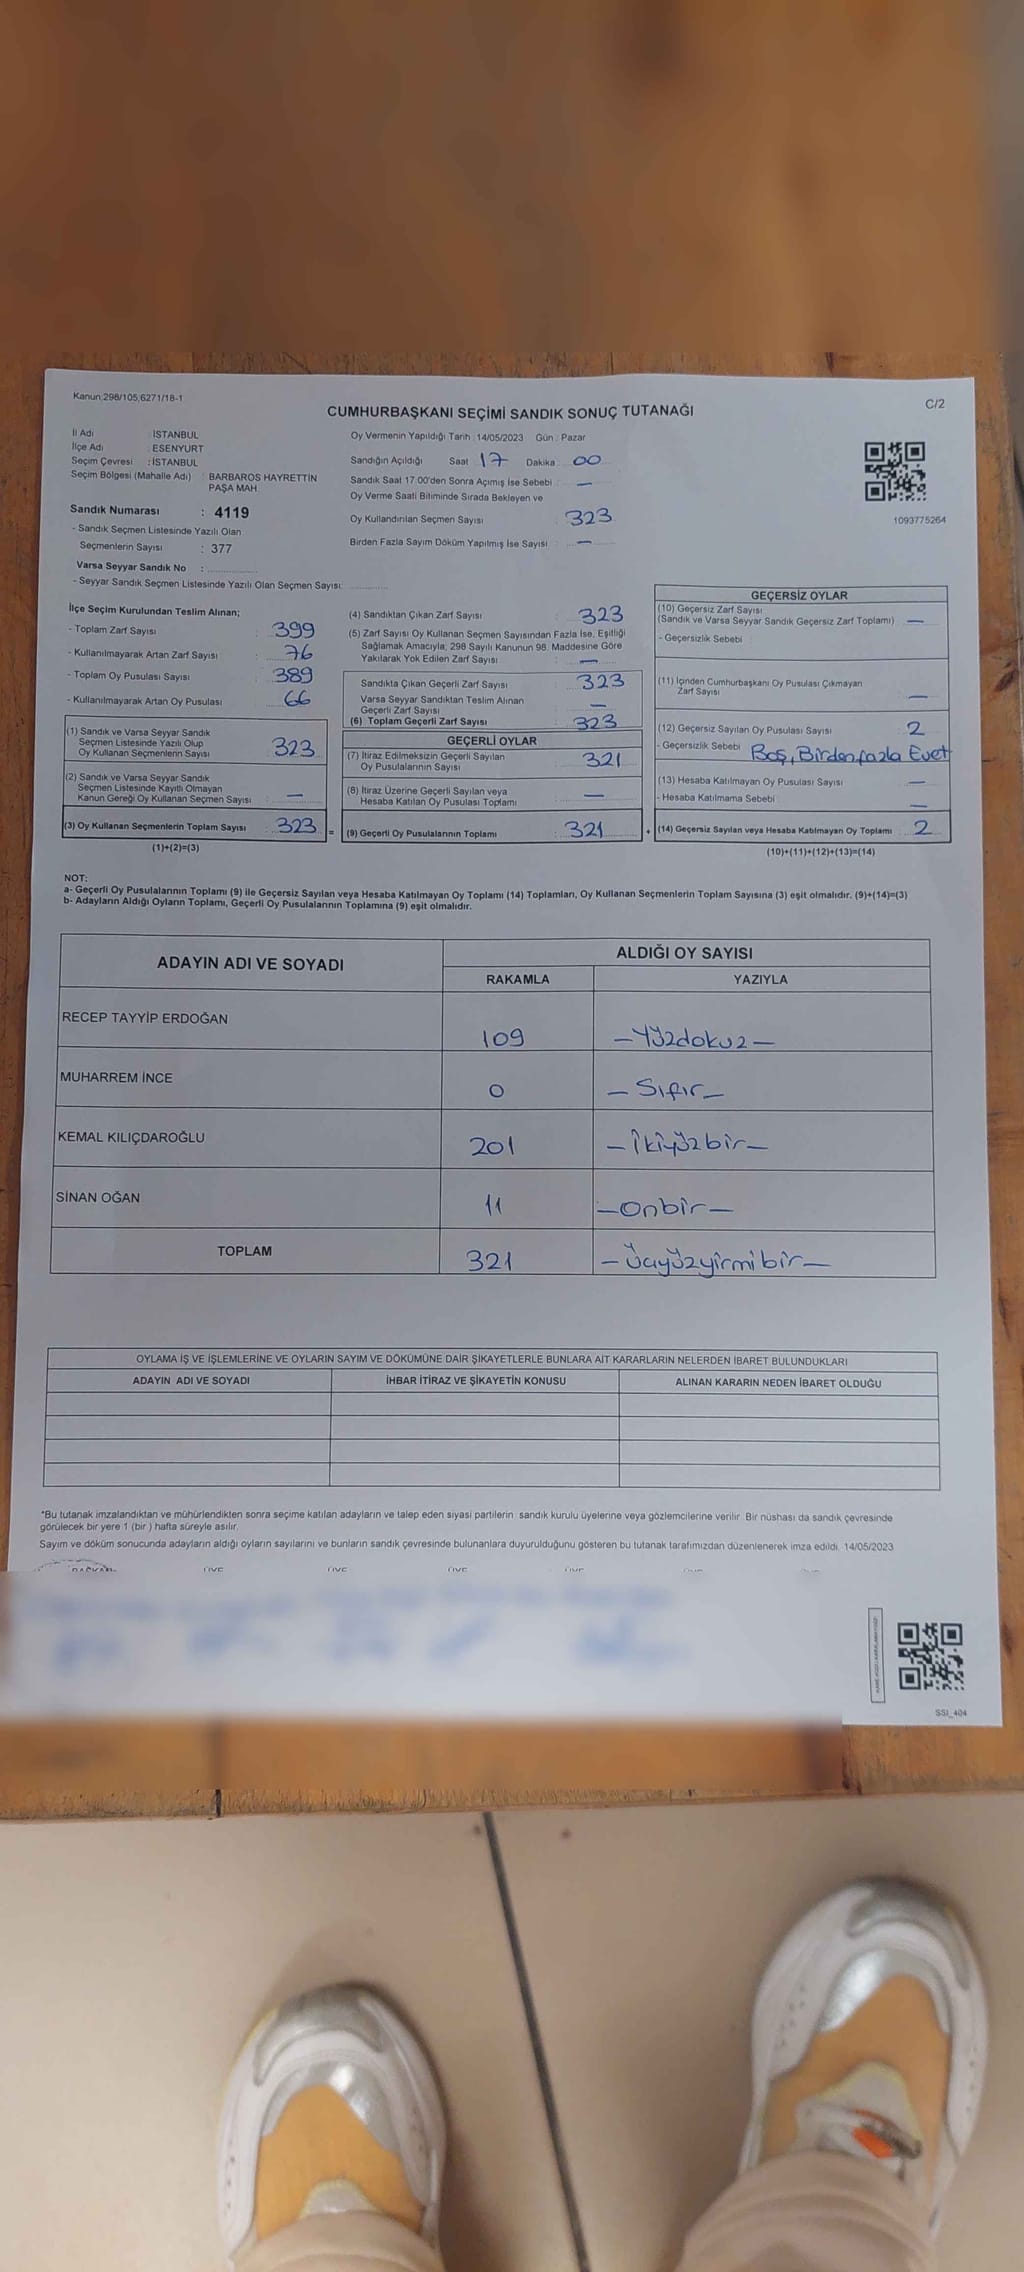 Kanun,298/105,6271/18-1
C/2
CUMHURBAŞKANI SEÇİMİ SANDIK SONUÇ TUTANAĞI
İl Adı : İSTANBUL
İlçe Adı : ESENYURT
Seçim Çevresi : İSTANBUL
Seçim Bölgesi (Mahalle Adı) : BARBAROS HAYRETTİN
PAŞA MAH.
Sandık Numarası : 4119
- Sandık Seçmen Listesinde Yazılı Olan
Seçmenlerin Sayısı : 377
Varsa Seyyar Sandık No :
- Seyyar Sandık Seçmen Listesinde Yazılı Olan Seçmen Sayısı:
Oy Vermenin Yapıldığı Tarih : 14/05/2023 Gün : Pazar
Sandığın Açıldığı Saat 17 Dakika 00
Sandık Saat 17:00'den Sonra Açımış İse Sebebi : —
Oy Verme Saati Bitiminde Sırada Bekleyen ve
Oy Kullandırılan Seçmen Sayısı : 323
Birden Fazla Sayım Döküm Yapılmış İse Sayısı : —
1093775264
İlçe Seçim Kurulundan Teslim Alınan;
- Toplam Zarf Sayısı : 399
- Kullanılmayarak Artan Zarf Sayısı : 76
- Toplam Oy Pusulası Sayısı : 389
- Kullanılmayarak Artan Oy Pusulası : 66
(1) Sandık ve Varsa Seyyar Sandık
Seçmen Listesinde Yazılı Olup
Oy Kullanan Seçmenlerin Sayısı : 323
(2) Sandık ve Varsa Seyyar Sandık
Seçmen Listesinde Kayıtlı Olmayan
Kanun Gereği Oy Kullanan Seçmen Sayısı : —
(3) Oy Kullanan Seçmenlerin Toplam Sayısı : 323 =
(1)+(2)=(3)
(4) Sandıktan Çıkan Zarf Sayısı : 323
(5) Zarf Sayısı Oy Kullanan Seçmen Sayısından Fazla İse, Eşitliği
Sağlamak Amacıyla; 298 Sayılı Kanunun 98. Maddesine Göre
Yakılarak Yok Edilen Zarf Sayısı : —
Sandıkta Çıkan Geçerli Zarf Sayısı : 323
Varsa Seyyar Sandıktan Teslim Alınan
Geçerli Zarf Sayısı : —
(6) Toplam Geçerli Zarf Sayısı : 323
GEÇERLİ OYLAR
(7) İtiraz Edilmeksizin Geçerli Sayılan
Oy Pusulalarının Sayısı : 321
(8) İtiraz Üzerine Geçerli Sayılan veya
Hesaba Katılan Oy Pusulası Toplamı : —
(9) Geçerli Oy Pusulalarının Toplamı : 321 +
GEÇERSİZ OYLAR
(10) Geçersiz Zarf Sayısı
(Sandık ve Varsa Seyyar Sandık Geçersiz Zarf Toplamı) : —
- Geçersizlik Sebebi :
(11) İçinden Cumhurbaşkanı Oy Pusulası Çıkmayan
Zarf Sayısı : —
(12) Geçersiz Sayılan Oy Pusulası Sayısı : 2
- Geçersizlik Sebebi : Boş, Birden fazla Evet
(13) Hesaba Katılmayan Oy Pusulası Sayısı : —
- Hesaba Katılmama Sebebi : —
(14) Geçersiz Sayılan veya Hesaba Katılmayan Oy Toplamı : 2
(10)+(11)+(12)+(13)=(14)
NOT:
a- Geçerli Oy Pusulalarının Toplamı (9) ile Geçersiz Sayılan veya Hesaba Katılmayan Oy Toplamı (14) Toplamları, Oy Kullanan Seçmenlerin Toplam Sayısına (3) eşit olmalıdır. (9)+(14)=(3)
b- Adayların Aldığı Oyların Toplamı, Geçerli Oy Pusulalarının Toplamına (9) eşit olmalıdır.
ADAYIN ADI VE SOYADI ALDIĞI OY SAYISI
RAKAMLA YAZIYLA
RECEP TAYYİP ERDOĞAN 109 — Yüzdokuz —
MUHARREM İNCE 0 — Sıfır —
KEMAL KILIÇDAROĞLU 201 — İkiyüzbir —
SİNAN OĞAN 11 — Onbir —
TOPLAM 321 — Üçyüzyirmibir —
OYLAMA İŞ VE İŞLEMLERİNE VE OYLARIN SAYIM VE DÖKÜMÜNE DAİR ŞİKAYETLERLE BUNLARA AİT KARARLARIN NELERDEN İBARET BULUNDUKLARI
ADAYIN ADI VE SOYADI İHBAR İTİRAZ VE ŞİKAYETİN KONUSU ALINAN KARARIN NEDEN İBARET OLDUĞU
*Bu tutanak imzalandıktan ve mühürlendikten sonra seçime katılan adayların ve talep eden siyasi partilerin sandık kurulu üyelerine veya gözlemcilerine verilir. Bir nüshası da sandık çevresinde
görülecek bir yere 1 (bir ) hafta süreyle asılır.
Sayım ve döküm sonucunda adayların aldığı oyların sayılarını ve bunların sandık çevresinde bulunanlara duyurulduğunu gösteren bu tutanak tarafımızdan düzenlenerek imza edildi. 14/05/2023
SSI_404